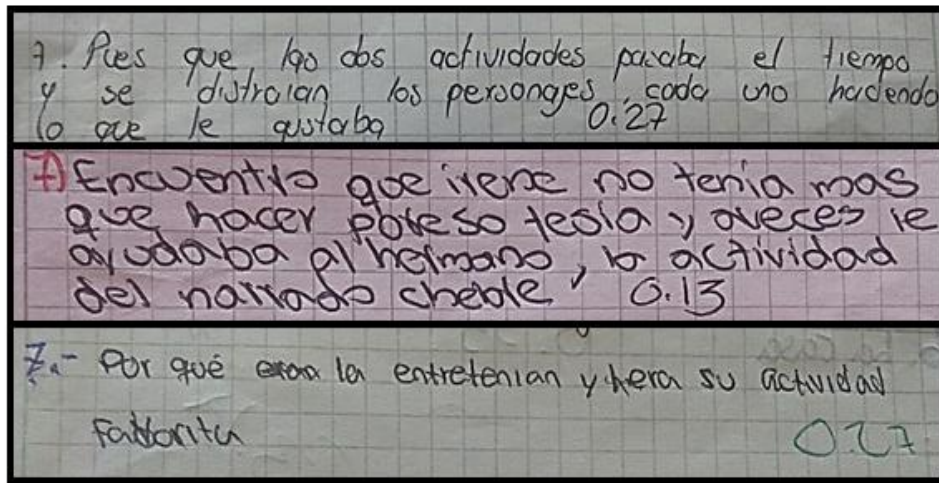 7. Pues que las dos actividades pasaba el tiempo
y se distraian los personajes, cada uno haciendo
lo que le gustaba 0.27
7) Encuentro que irene no tenia mas
que hacer poreso tesia y aveces le
ayudaba al hermano, la actividad
del narrado cheble 0.13
7.- Por qué la entretenian y hera su actividad
Faborita 0.27